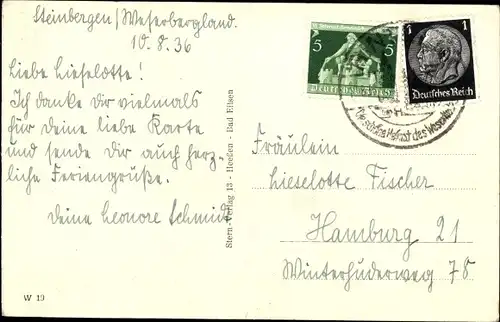 Steinbergen/Weserbergland.
10.8.36
Liebe Lieselotte!
Ich danke dir vielmals
für deine liebe Karte
und sende dir auch herz-
liche Feriengrüße.
Deine Leonore Schmidt
Stern-Verlag 13 - Heeßen - Bad Eilsen
5 5
Deutsches Reich
1 1
Deutsches Reich
des Weser
Fräulein
Lieselotte Fischer
Hamburg 21
Winterhuderweg 78
W 19